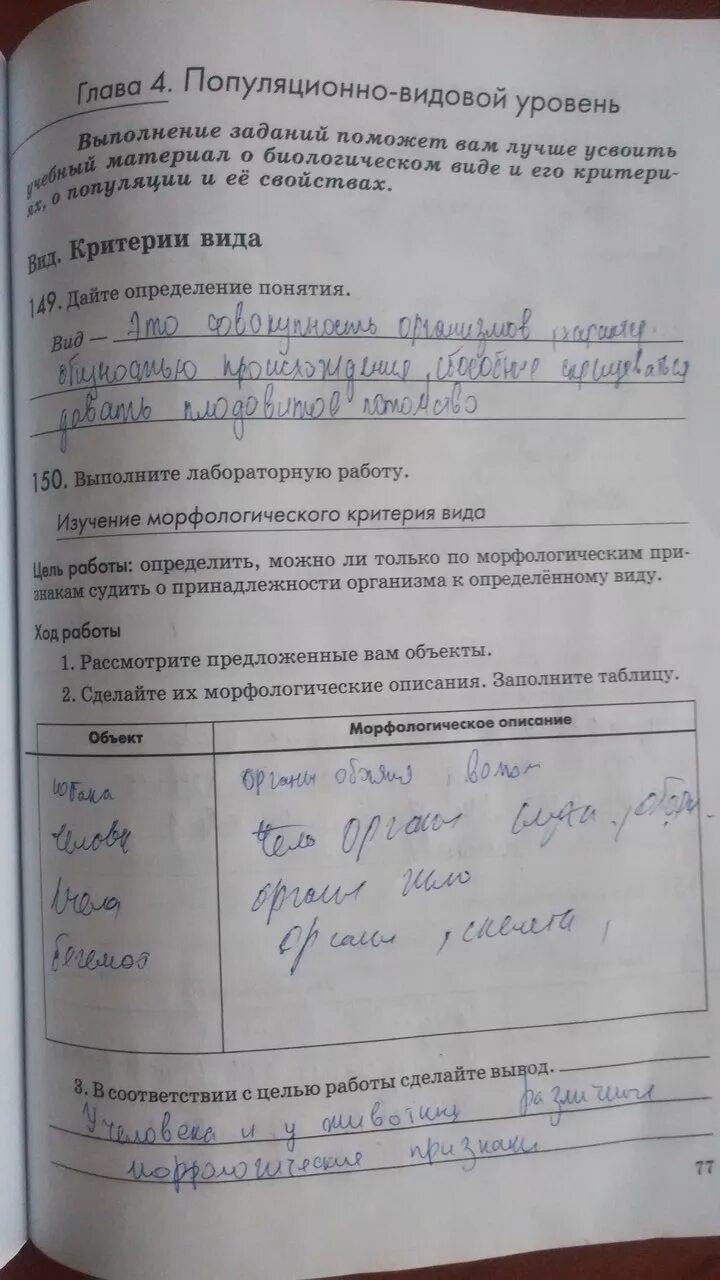 Глава 4. Популяционно-видовой уровень
Выполнение заданий поможет вам лучше усвоить
учебный материал о биологическом виде и его критери-
ях, о популяции и её свойствах.
Вид. Критерии вида
149. Дайте определение понятия.
Вид — Это совокупность организмов, характер.
общностью происхождение, способные скрещиваться
давать плодовитов потомство
150. Выполните лабораторную работу.
Изучение морфологического критерия вида
Цель работы: определить, можно ли только по морфологическим при-
знакам судить о принадлежности организма к определённому виду.
Ход работы
1. Рассмотрите предложенные вам объекты.
2. Сделайте их морфологические описания. Заполните таблицу.
Объект Морфологическое описание
собака органы
органы слуха,
Пчела органы
Бегемот органы, скелета,
3. В соответствии с целью работы сделайте вывод.
У человека и у животных различные
морфологические признаки
77